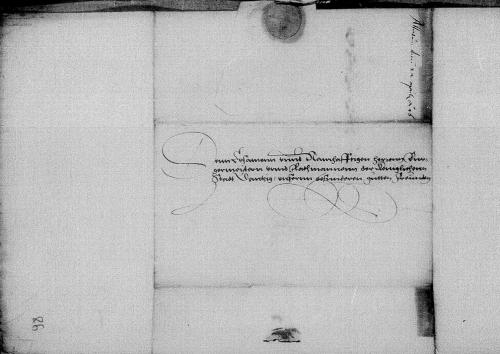 Denn Ersamenn unnd Namhafftigen herrenn Bur-
germeistern unnd Rathmannenn der Koniglichenn
Stadt Dantzig, unsernn besunderen gutten freunden
98